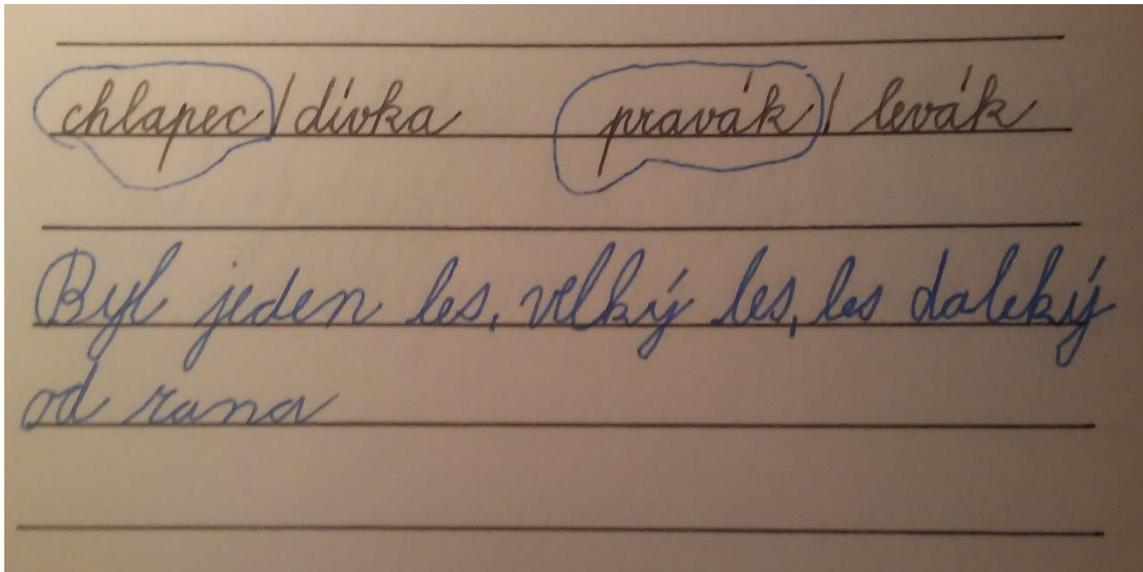 chlapec / dívka pravák / levák
Byl jeden les, velký les, les daleký
od rana